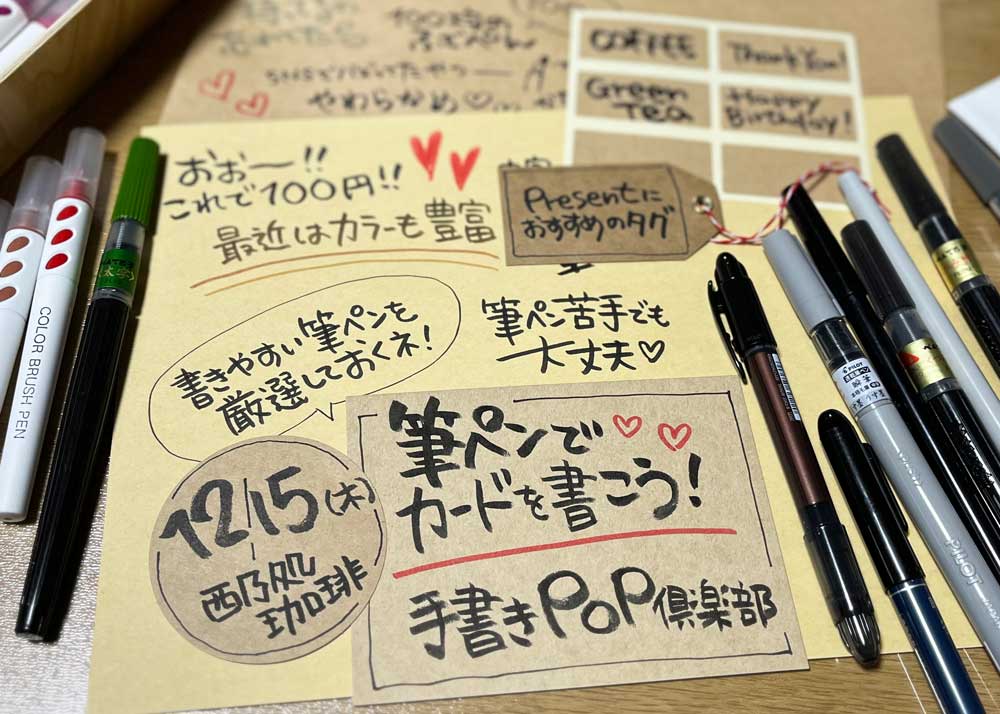 100均の
ふでぺん
やわらかめ♡
COFFEE
Thank You!
Green
Tea
Happy
Birthday!
おぉ〜!!
これで100円!!
最近はカラーも豊富
Presentに
おすすめのタグ
書きやすい筆ペンを
厳選しておくネ!
筆ペン苦手でも
大丈夫♡
筆ペンで
カードを書こう!
手書きPOP倶楽部
12/15(木)
西乃処
珈琲
COLOR BRUSH PEN
PILOT
PILOT